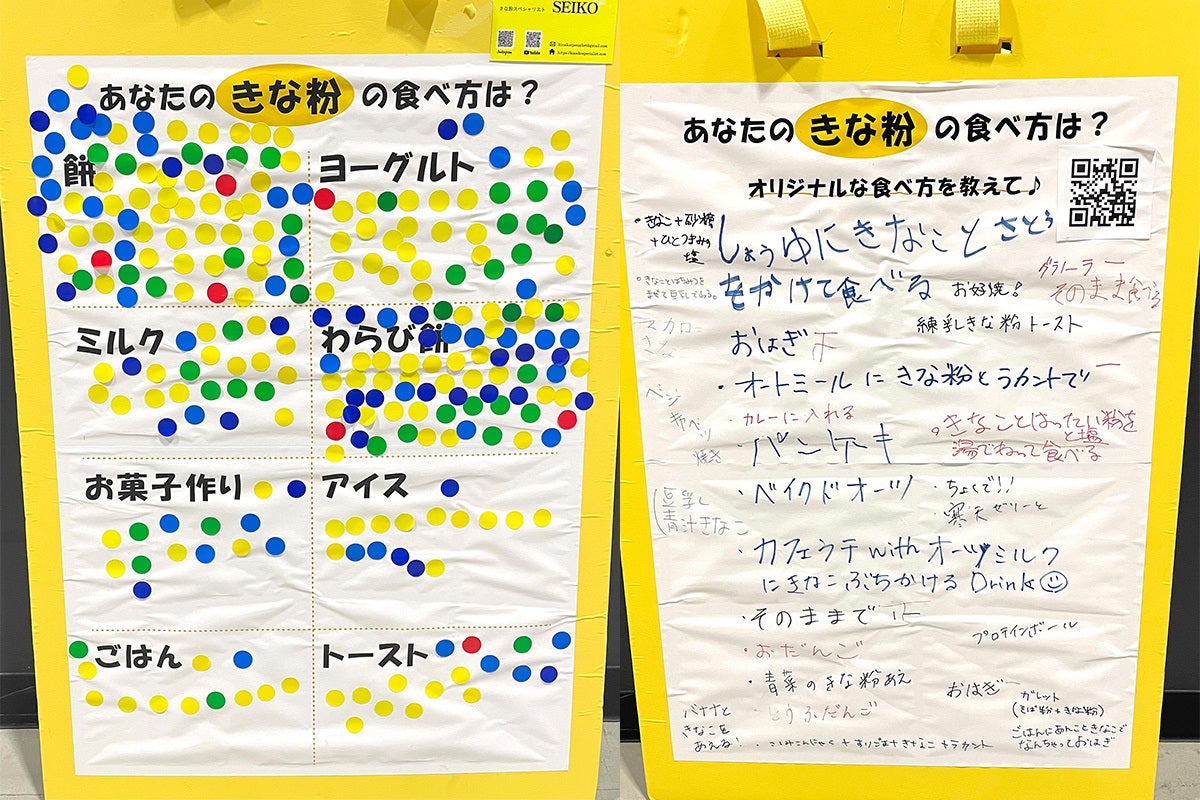 きな粉スペシャリスト SEIKO
Instagram
YouTube
あなたの きな粉 の食べ方は？
餅
ヨーグルト
ミルク
わらび餅
お菓子作り
アイス
ごはん
トースト
あなたの きな粉 の食べ方は？
オリジナルな食べ方を教えて♪
・きなこ+砂糖
+ひとつまみの
塩
しょうゆにきなことさとう
をかけて食べる
・きなことはちみつを
まぜて豆乳でわる。
お好焼！
グラノーラー
そのまま食べる
練乳きな粉トースト
マカロニ
きなこ
おはぎ 下
・オートミールにきな粉とラカントで 一
ベジ
キャベツ
焼き
・カレーに入れる
・パンケーキ
。きなことはったい粉を
と塩
湯でねって食べる
・ベイクドオーツ
・ちょくで!!
・寒天ゼリーと
豆乳し
青汁きなこ
・カフェラテwithオーツミルク
にきなこぶちかけるDrink☺
・そのままで 正
プロテインボール
・おだんご
・青菜のきな粉あえ
おはぎ 一
・とうふだんご
ガレット
(そば粉+きな粉)
バナナと
きなこを
あえる！
ごはんにあんこときなこで
なんちゃっておはぎ
・こしみこんにゃく+すりごま+きなこ+ラカント